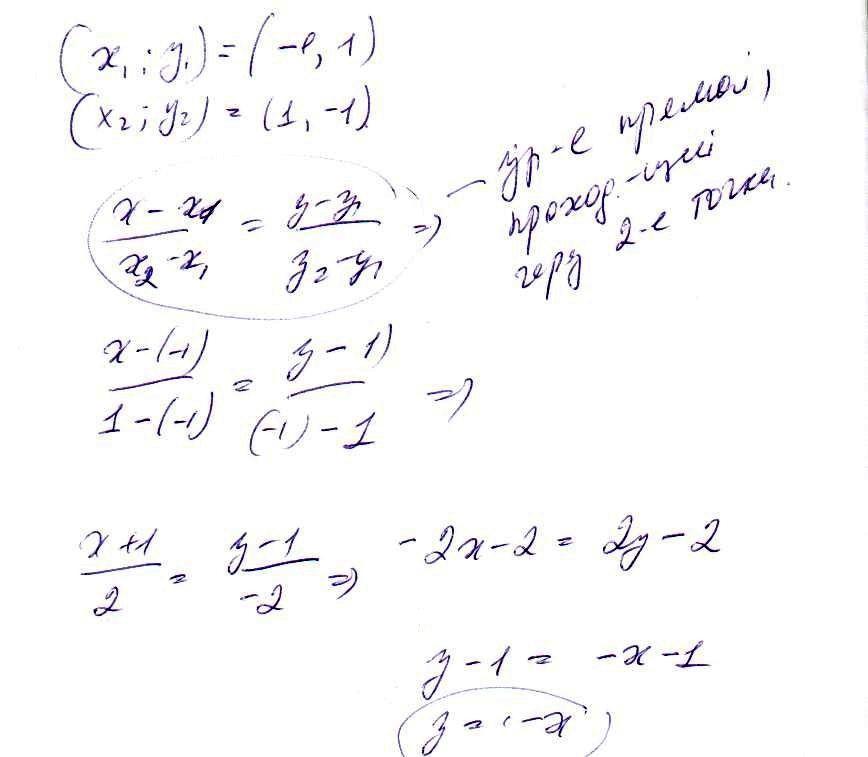 (x₁; y₁) = (-1, 1)
(x₂; y₂) = (1, -1)
(x - x₁)/(x₂ - x₁) = (y - y₁)/(y₂ - y₁) =>
- ур-е прямой,
проход.-щей
через 2-е точки.
(x - (-1))/(1 - (-1)) = (y - 1)/((-1) - 1) =>
(x + 1)/2 = (y - 1)/(-2) => -2x - 2 = 2y - 2
y - 1 = -x - 1
y = -x